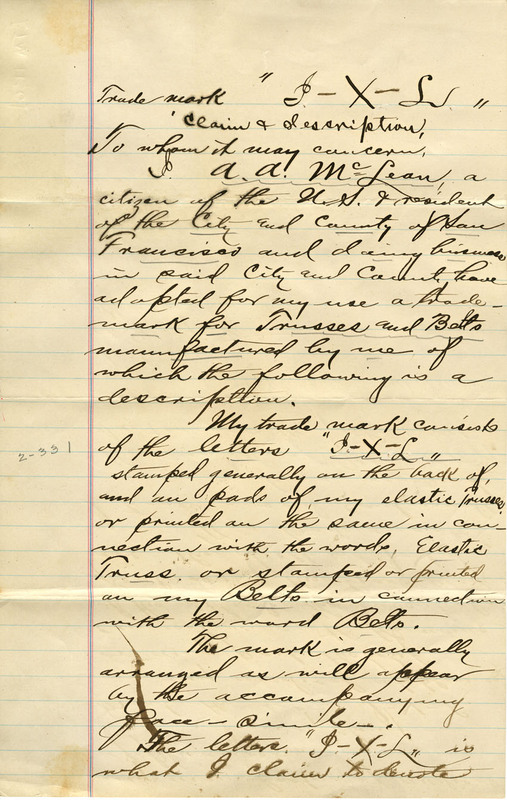 Trade mark "I-X-L."
claim & description,
To whom it may concern,
I A. A. McLean, a
citizen of the U.S. & resident
of the City and County of San
Francisco and doing business
in said City and County have
adopted for my use a trade-
mark for Trusses and Belts
manufactured by me of
which the following is a
description.
My trade mark consists
of the letters "I-X-L"
2-331
stamped generally on the back of,
and on pads of, my elastic Trusses,
or printed on the same in con-
nection with the words, Elastic
Truss. or stamped or printed
on my Belts in connection
with the word Belts.
The mark is generally
arranged as will appear
by the accompanying
face-simile-.
The letters. "I-X-L" is
what I claim to denote